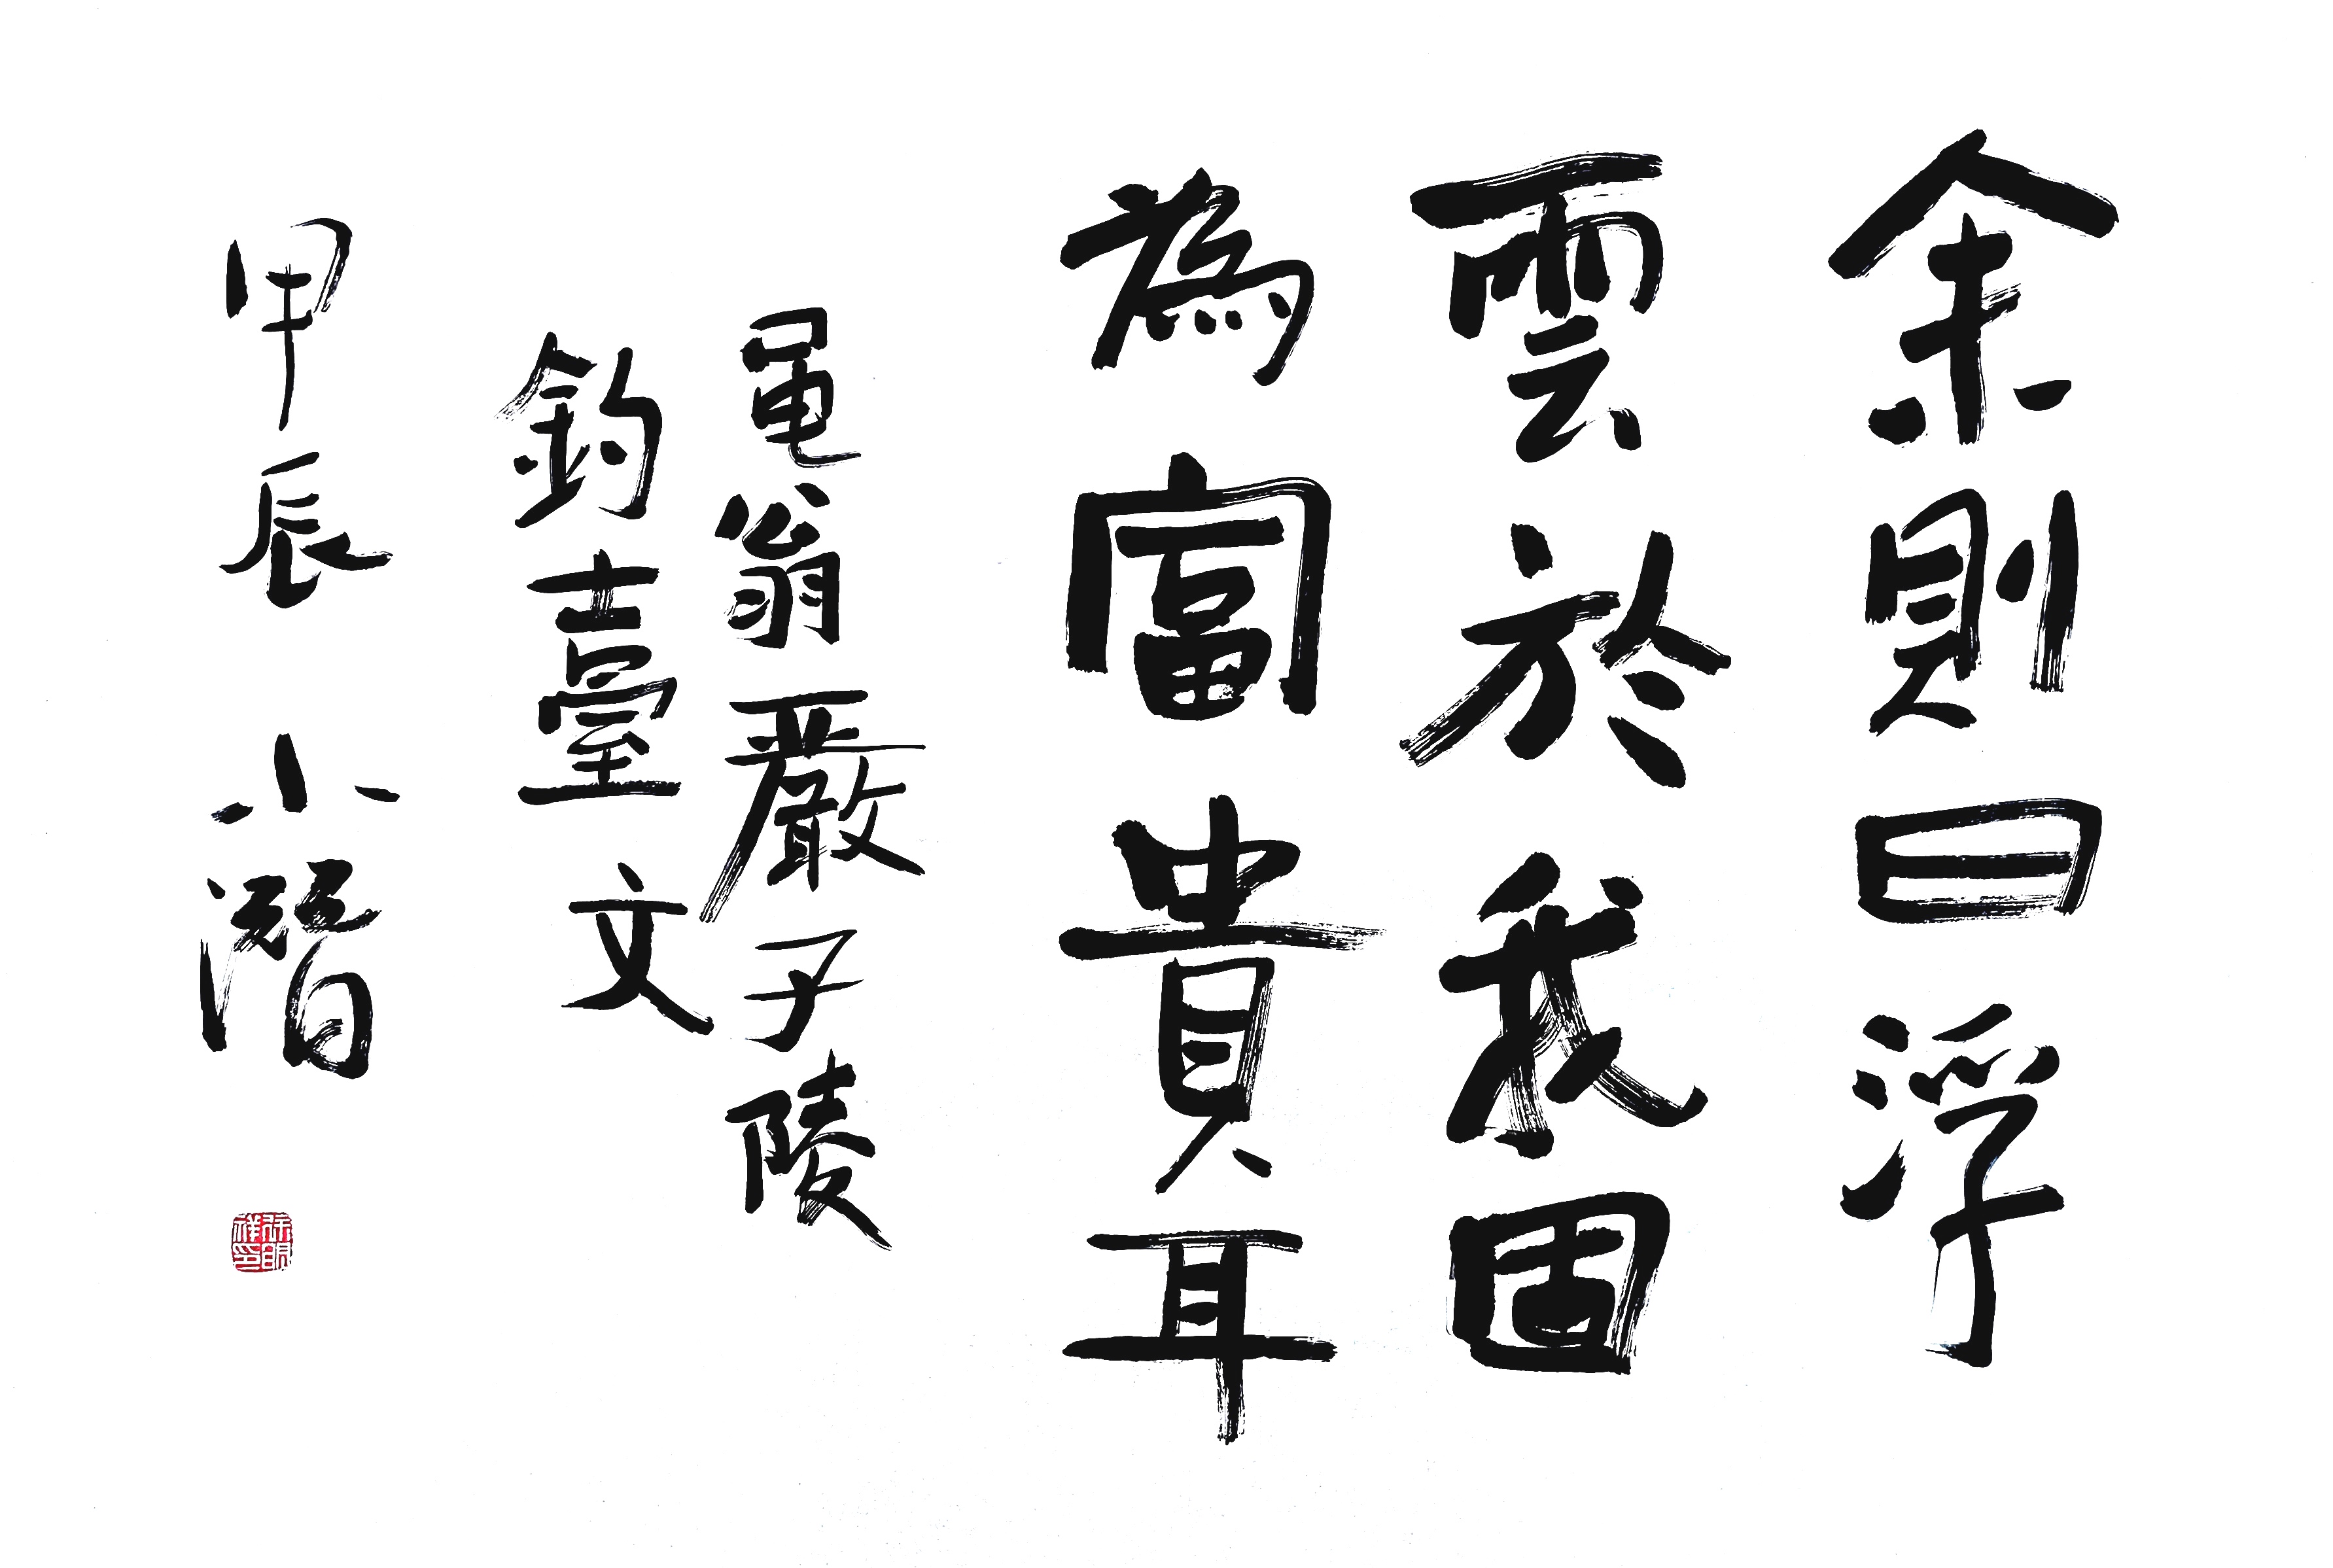 余則曰浮
雲於我固
為富貴耳
黽翁嚴子陵
釣臺文
甲辰 小潛